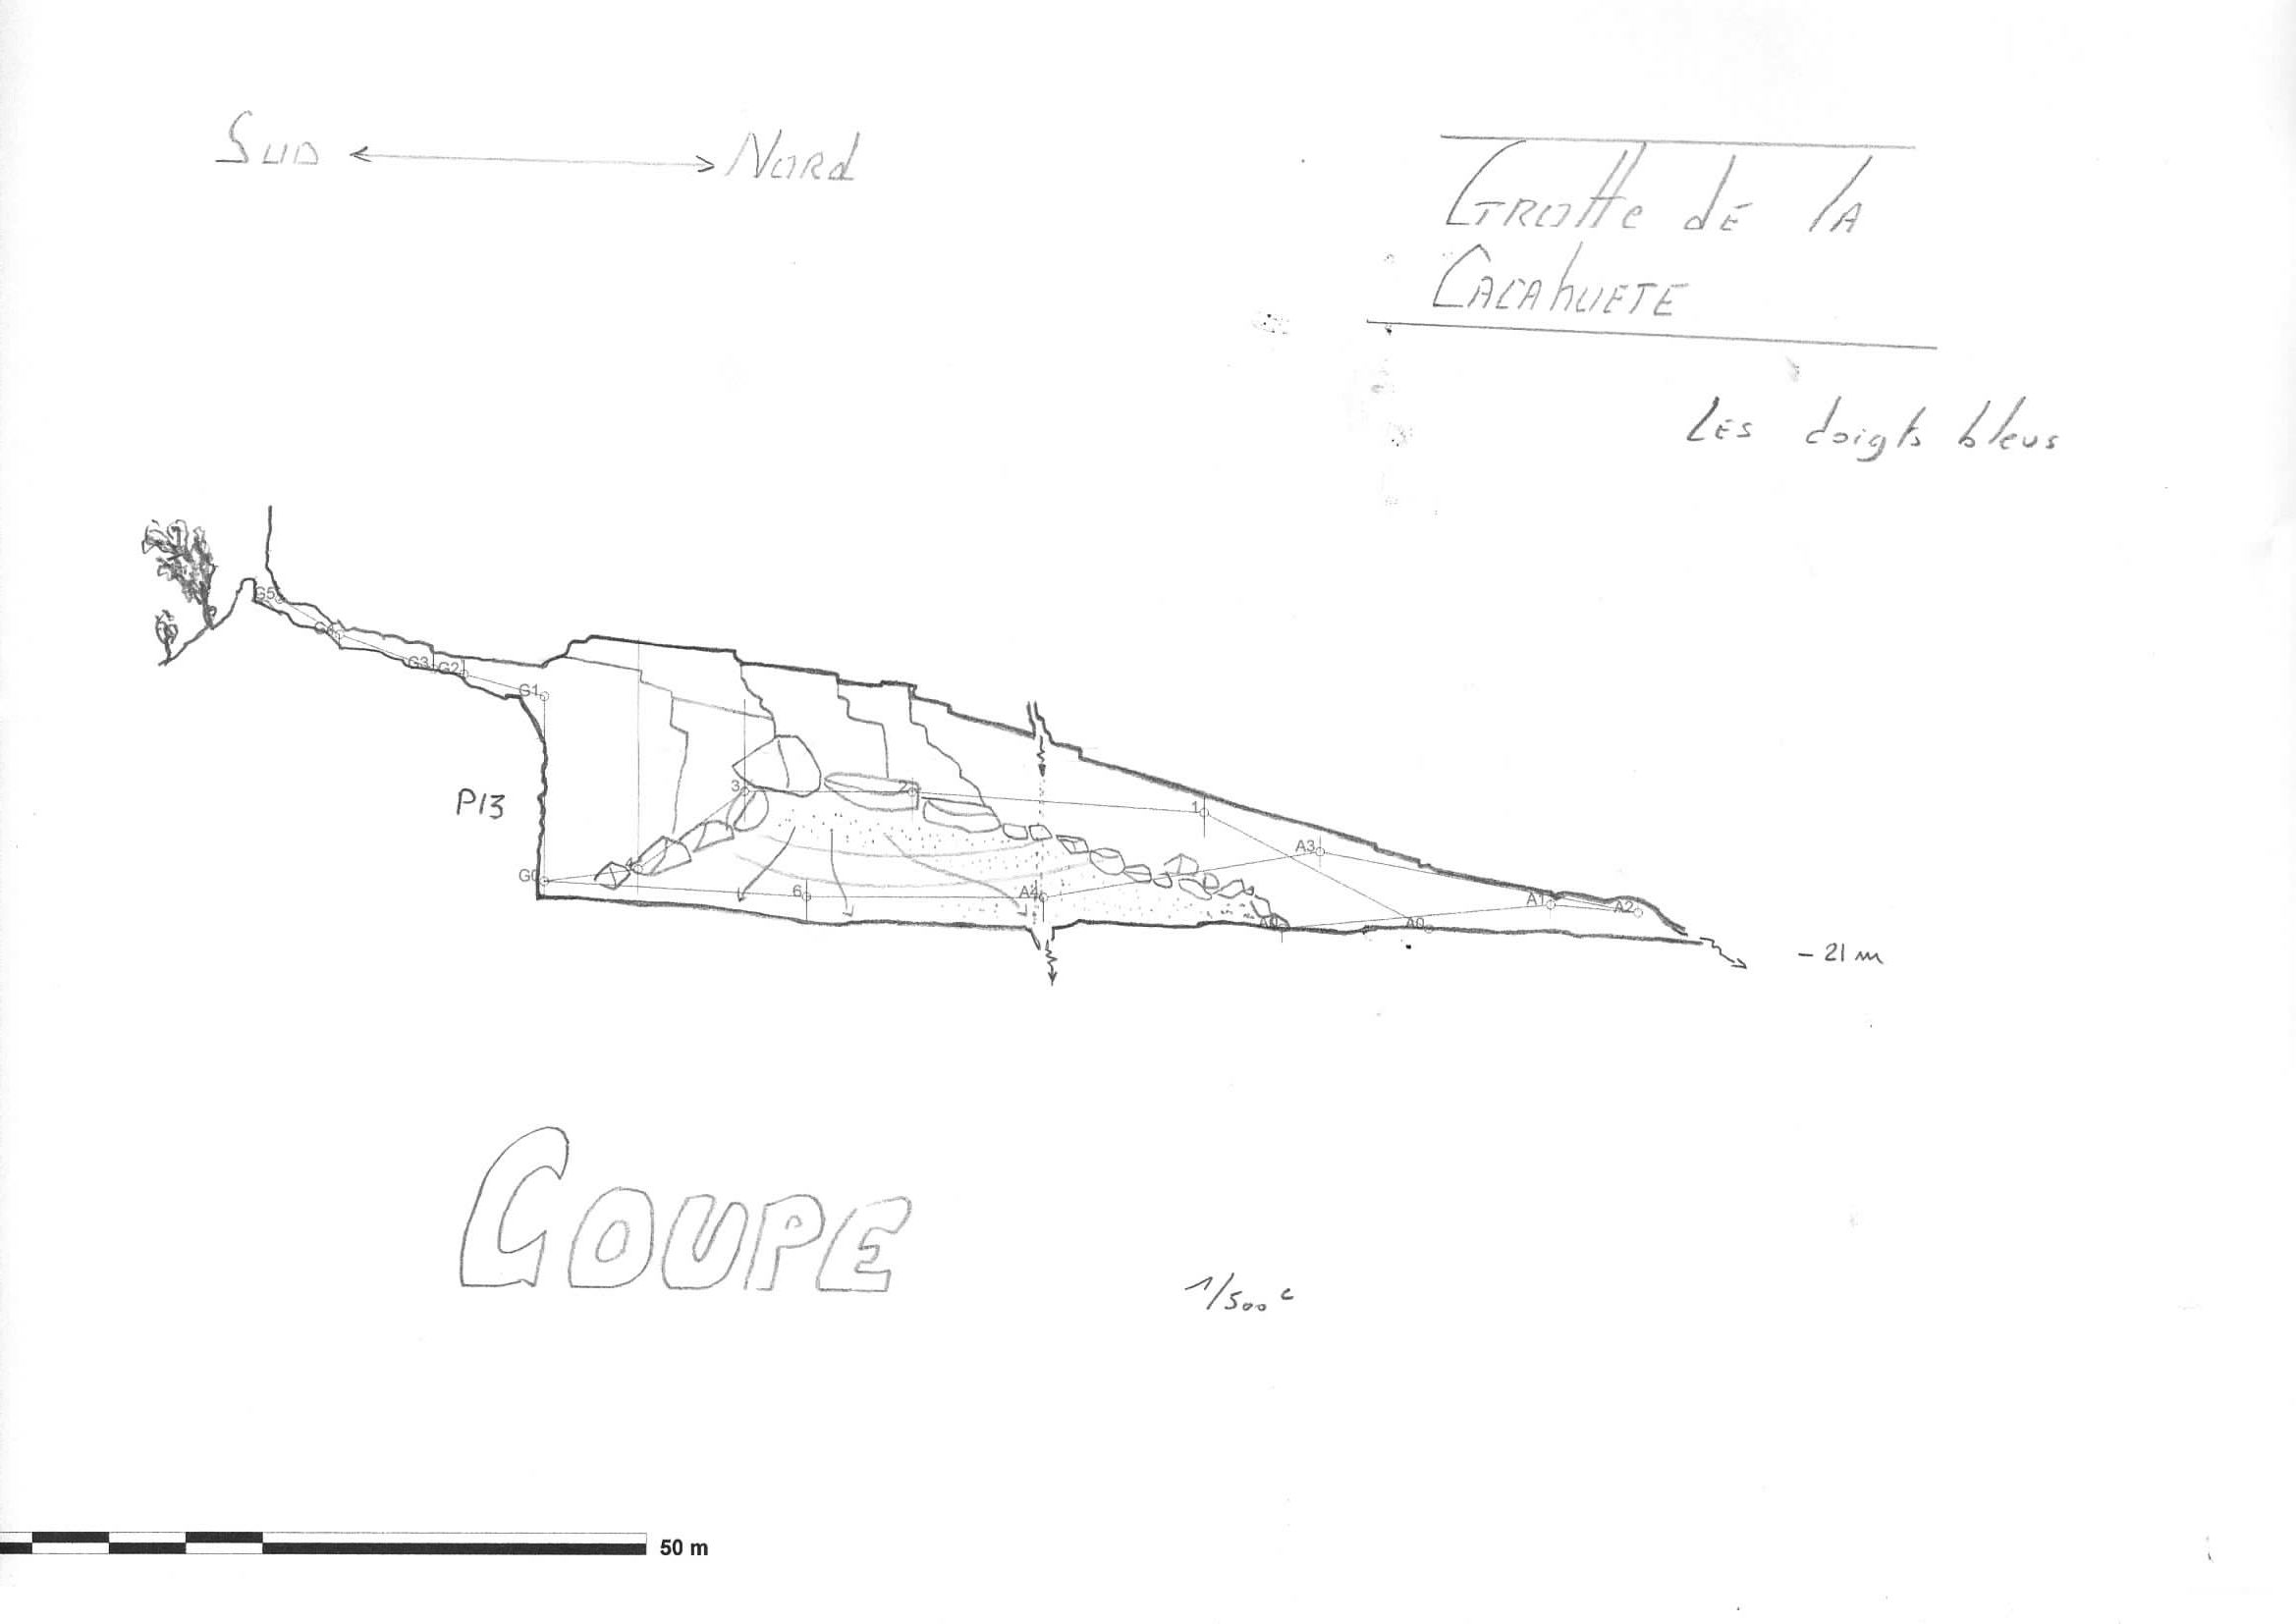 SUD Nord
Grotte de la
Cacahuete
Les doigts bleus
G5
G3 G2
G1
P13
3
2
1
A3
G0
4
6
A4
A1
A2
A9
A0
- 21 m
COUPE
1/500 e
50 m